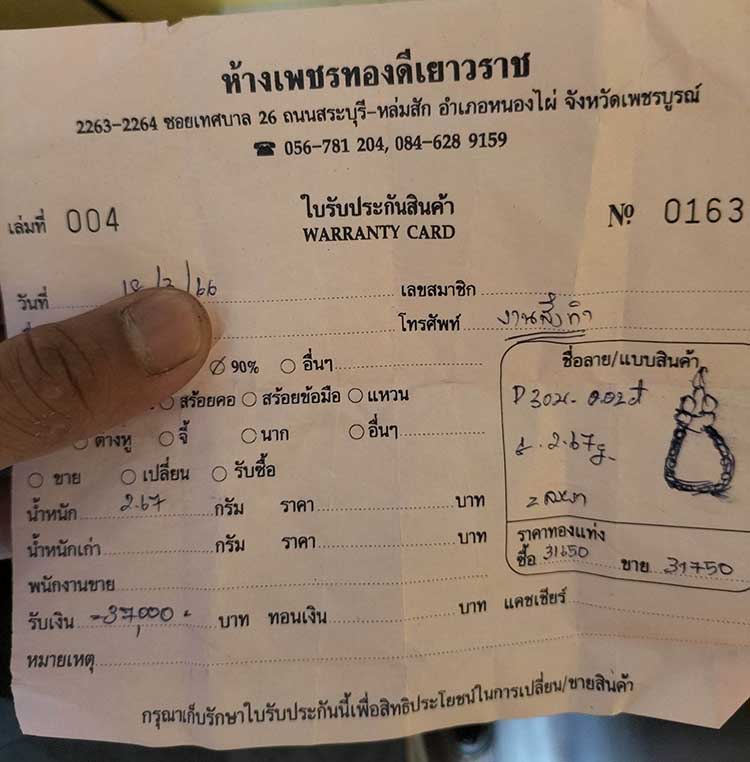 ห้างเพชรทองดีเยาวราช
2263-2264 ซอยเทศบาล 26 ถนนสระบุรี-หล่มสัก อำเภอหนองไผ่ จังหวัดเพชรบูรณ์
☎ 056-781 204, 084-628 9159
เล่มที่ 004
ใบรับประกันสินค้า
WARRANTY CARD
№ 0163
วันที่ /66 เลขสมาชิก
โทรศัพท์
90% อื่นๆ
สร้อยคอ สร้อยข้อมือ แหวน
ต่างหู จี้ นาก อื่นๆ
ขาย เปลี่ยน รับซื้อ
น้ำหนัก 2.67 กรัม ราคา บาท
น้ำหนักเก่า กรัม ราคา บาท
พนักงานขาย
รับเงิน -37,000- บาท ทอนเงิน บาท แคชเชียร์
หมายเหตุ
ชื่อลาย/แบบสินค้า
2.67g.
ราคาทองแท่ง
ซื้อ 31650 ขาย 31750
กรุณาเก็บรักษาใบรับประกันนี้เพื่อสิทธิประโยชน์ในการเปลี่ยน/ขายสินค้า